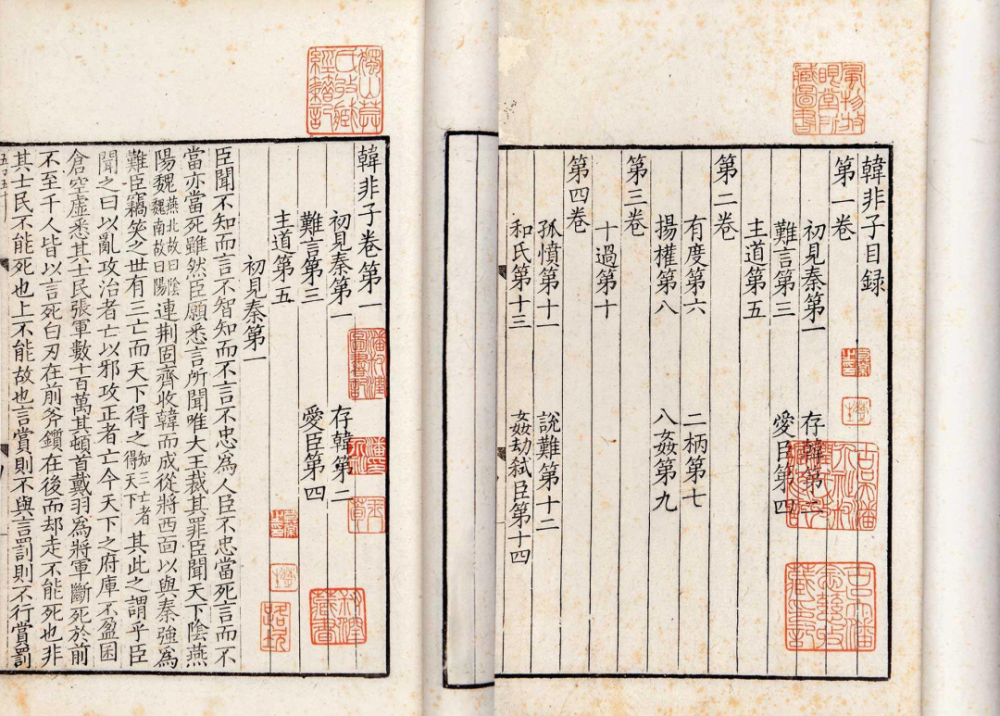 韓非子目録
第一卷
初見秦第一 存韓第二
難言第三 愛臣第四
主道第五
第二卷
有度第六 二柄第七
揚權第八 八姦第九
第三卷
十過第十
第四卷
孤憤第十一 說難第十二
和氏第十三 姦劫弒臣第十四
韓非子卷第一
初見秦第一 存韓第二
難言第三 愛臣第四
主道第五
初見秦第一
臣聞不知而言不智知而不言不忠為人臣不忠當死言而不
當亦當死雖然臣願悉言所聞唯大王裁其罪臣聞天下陰燕
陽魏燕北故曰陰魏南故曰陽連荆固齊收韓而成從將西面以與秦強為
難臣竊笑之世有三亡而天下得之知三亡者得天下其此之謂乎臣
聞之曰以亂攻治者亡以邪攻正者亡今天下之府庫不盈囷
倉空虛悉其士民張軍數十百萬其頓首戴羽為將軍斷死於前
不至千人皆以言死白刃在前斧鑕在後而却走不能死也非
其士民不能死也上不能故也言賞則不與言罰則不行賞罰